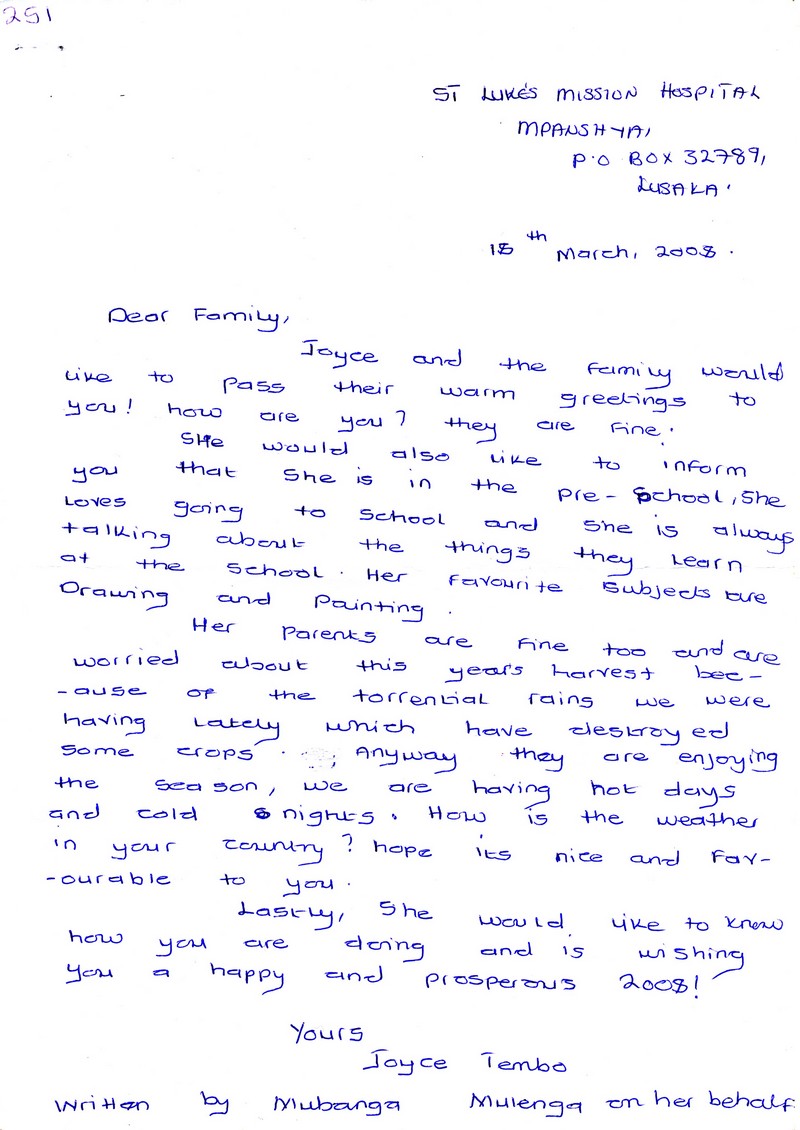 251
ST LUKE'S MISSION HOSPITAL
MPANSHYA,
P.O BOX 32789,
LUSAKA.
18th March, 2008.
Dear Family,
Joyce and the family would
like to pass their warm greetings to
you! how are you? they are fine.
She would also like to inform
you that she is in the pre-school, she
loves going to school and she is always
talking about the things they learn
at the school. Her favourite subjects are
Drawing and painting.
Her parents are fine too and are
worried about this years harvest bec-
-ause of the torrential rains we were
having lately which have destroyed
some crops. , Anyway they are enjoying
the season, we are having hot days
and cold nights. How is the weather
in your country? hope its nice and fav-
-ourable to you.
Lastly, she would like to know
how you are doing and is wishing
you a happy and prosperous 2008!
Yours
Joyce Tembo
Written by Mubanga Mulenga on her behalf.